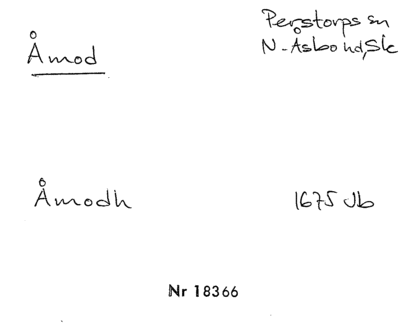 Åmod
Perstorps sn
N-Åsbo hd, Sk
Åmodh
1675 Jb
Nr 18366